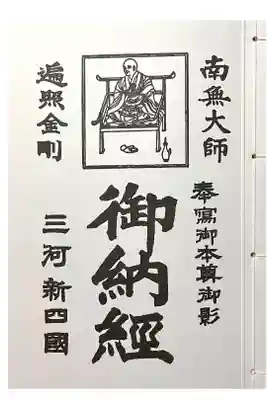 南無大師
遍照金剛
奉写御本尊御影
御納経
三河新四國